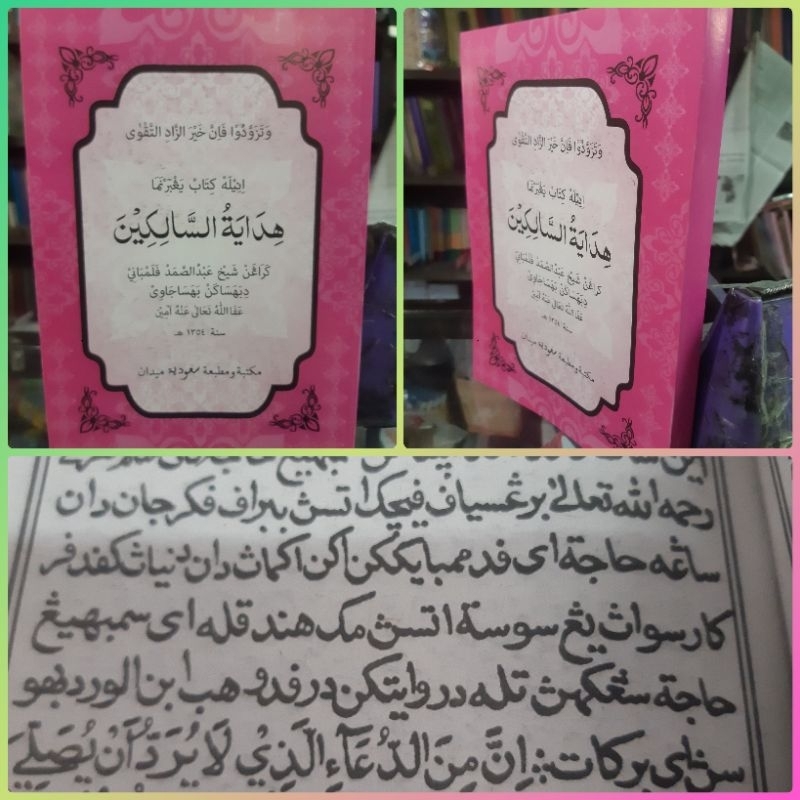 وَتَزَوَّدُوْا فَاِنَّ خَيْرَ الزَّادِ التَّقْوٰى
اِيْلَهْ كِتَابْ يَڠْبَرْنَمَا
هِدَايَةُ السَّالِكِيْنَ
كَرَاڠَنْ شَيْخ عَبْدُالصَّمَدْ فَلَمْبَانِيْ
دِبَهَسَاكَنْ بَهَسَاجَاوِيْ
عَفَا اللّٰهُ تَعَالٰى عَنْهُ آمِيْن
سنة ١٣٥٤ هـ
مكتبة ومطبعة سعودية ميدان
وَتَزَوَّدُوْا فَاِنَّ خَيْرَ الزَّادِ التَّقْوٰى
اِيْلَهْ كِتَابْ يَڠْبَرْنَمَا
هِدَايَةُ السَّالِكِيْنَ
كَرَاڠَنْ شَيْخ عَبْدُالصَّمَدْ فَلَمْبَانِيْ
دِبَهَسَاكَنْ بَهَسَاجَاوِيْ
عَفَا اللّٰهُ تَعَالٰى عَنْهُ آمِيْن
سنة ١٣٥٤ هـ
مكتبة ومطبعة سعودية ميدان
رحمه الله تعالى برڠسياف اتسڽ ببراف فكرجان دان
ساڠة حاجة اي فد ممبايككن اكن اݢماڽ دان دنياڽ تكفد فر
كار سواتڽ يڠ سوسة اتسڽ مك هندقله اي سمبهيڠ
حاجة سڠكهڽ تله دروايتكن درفد وهب ابن الورد بهو
سڽ اي بركات :: اِنَّ مِنَ الدُّعَآءِ الَّذِيْ لَا يُرَدُّ اَنْ يُصَلِّيَ